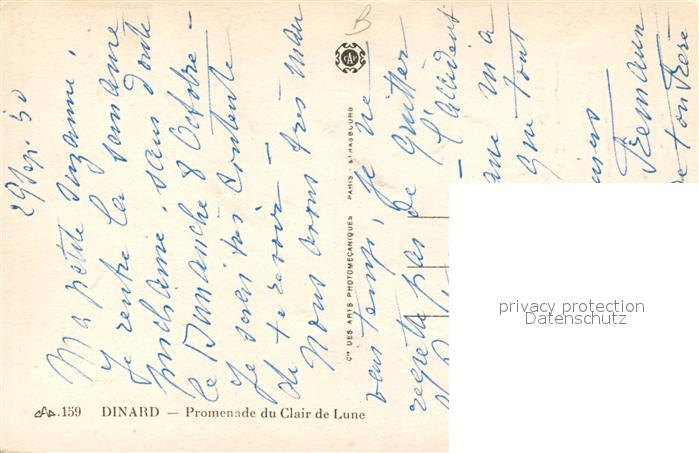 29 Sep. 50
Ma petite Suzanne,
Je rentre la semaine
prochaine, sans doute
le Dimanche 8 Octobre –
Je serai très contente
de te revoir –
Nous avons très mau
vais temps, je ne
regrette pas de quitter
– l'accident
que m'a
que tout
ton frère
B
CAP
Cie DES ARTS PHOTOMECANIQUES PARIS - STRASBOURG
CAP.159 DINARD — Promenade du Clair de Lune
privacy protection
Datenschutz